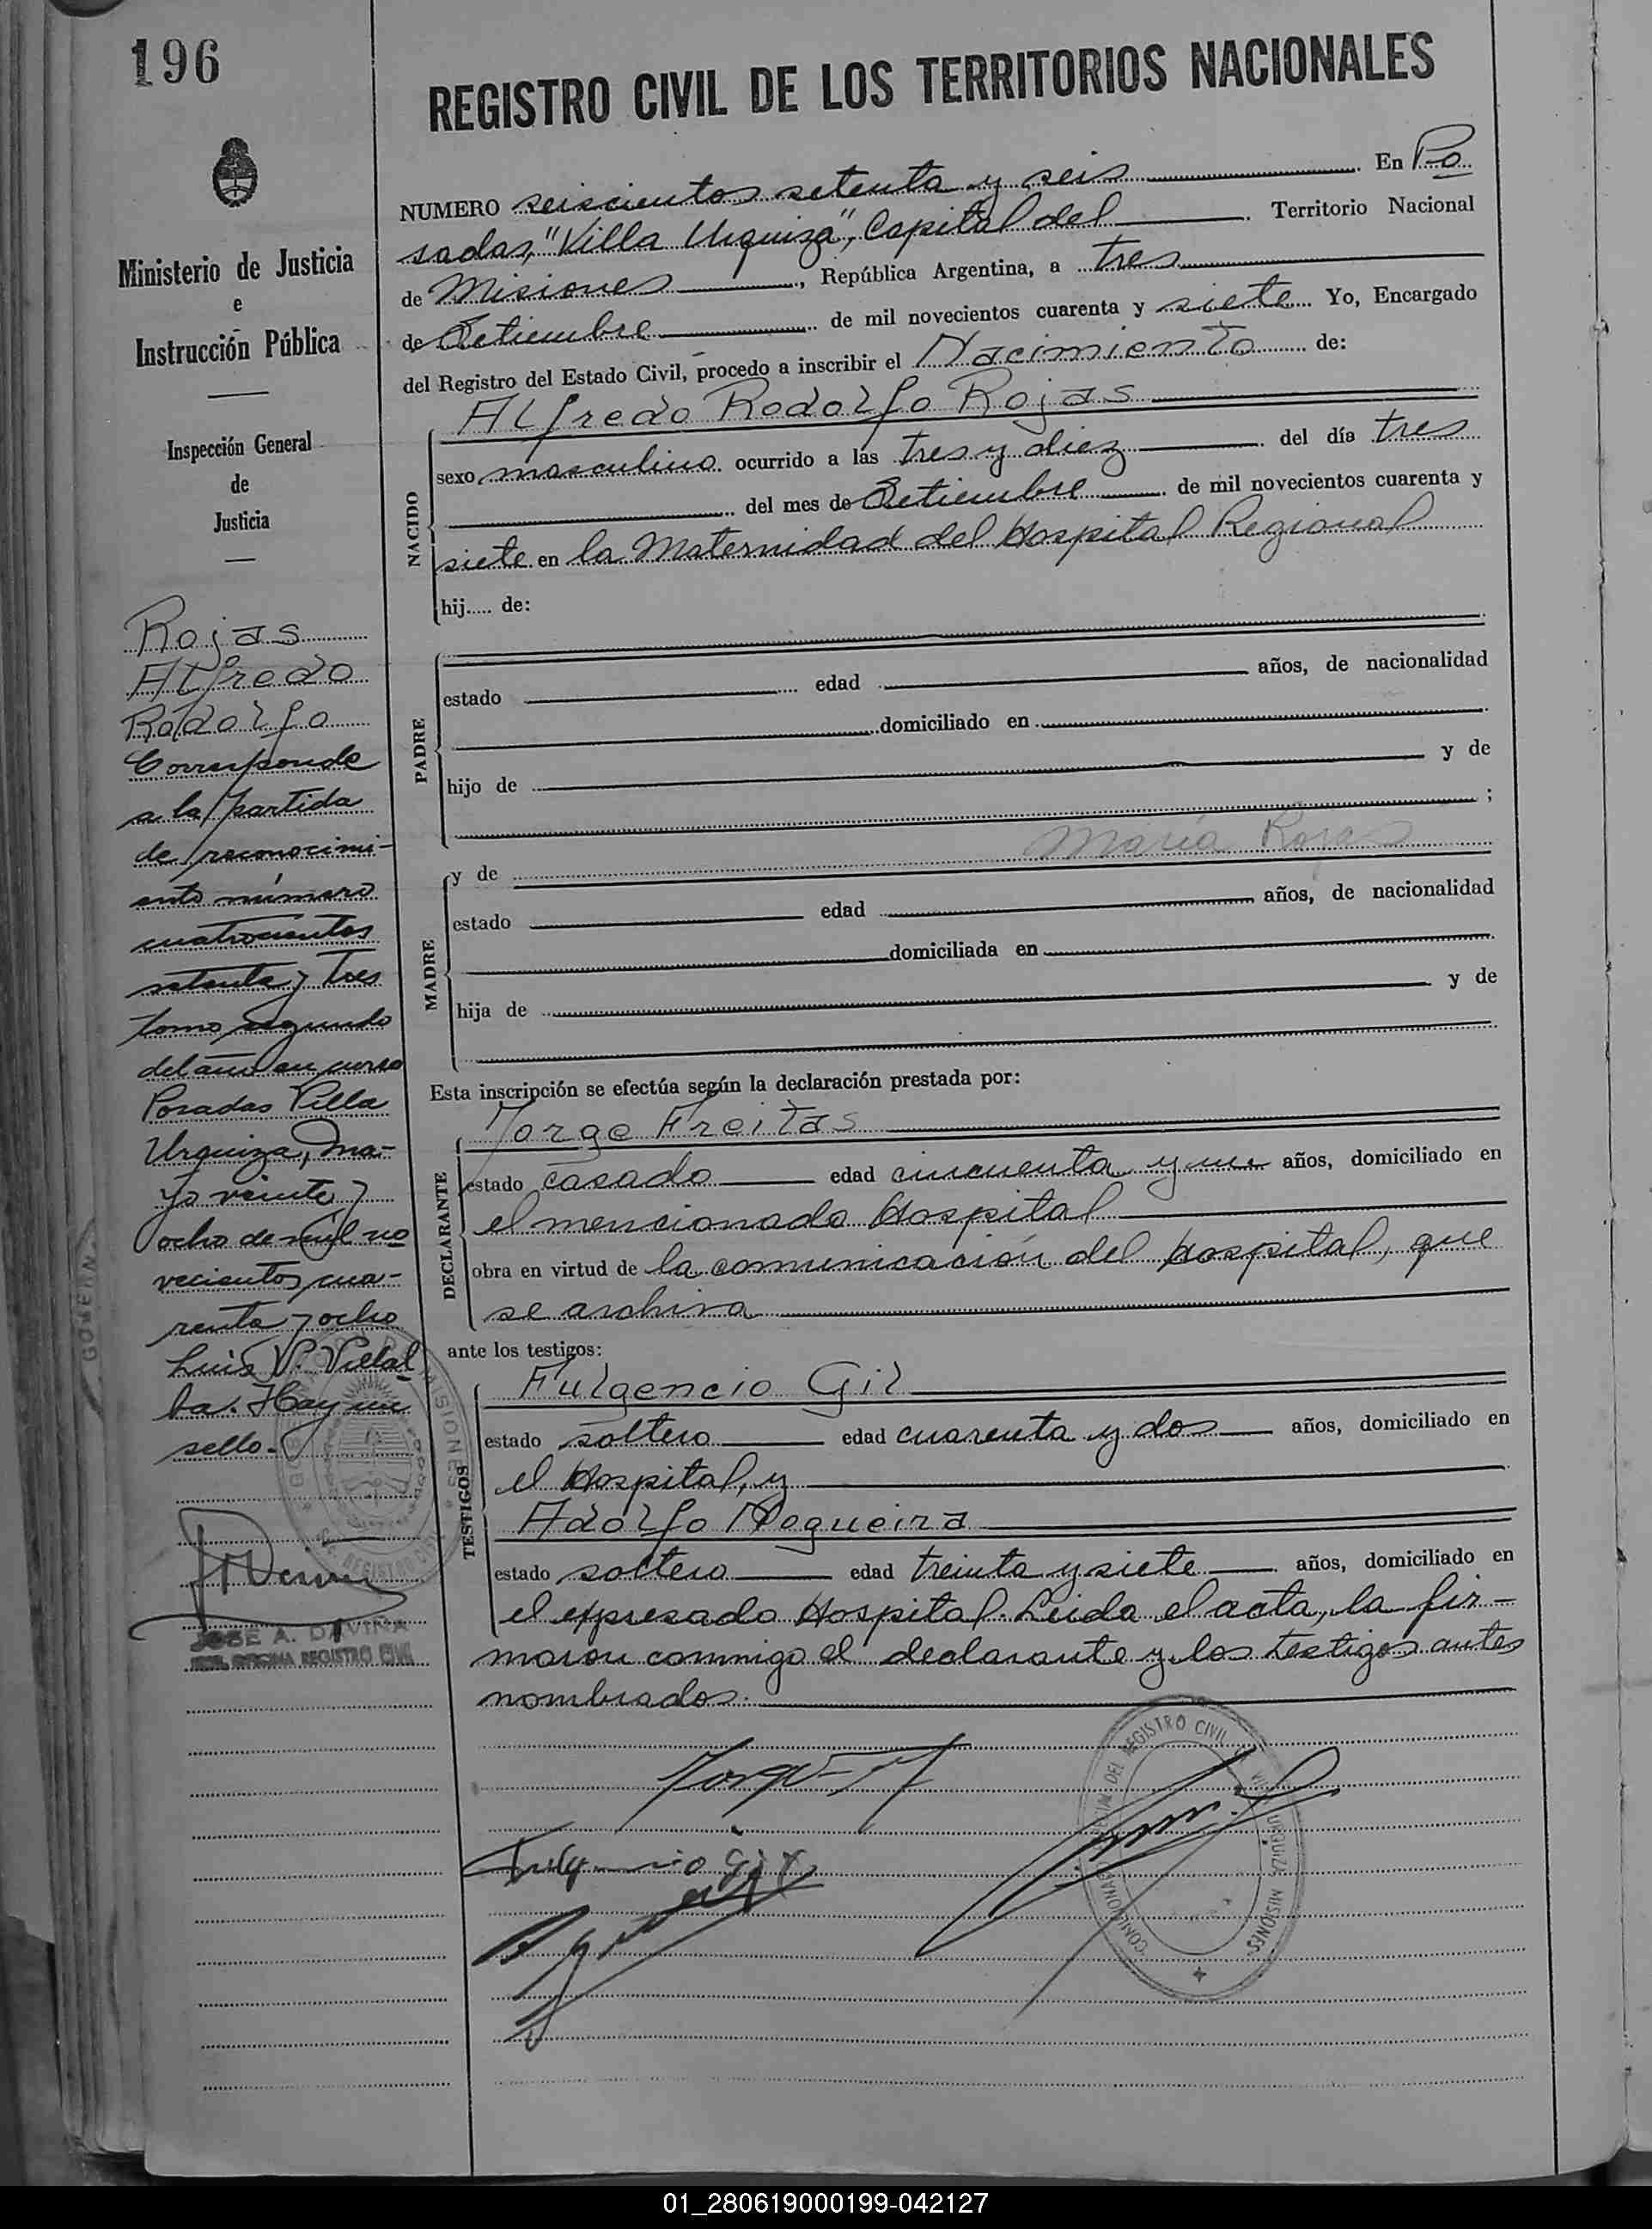 196
REGISTRO CIVIL DE LOS TERRITORIOS NACIONALES
NUMERO seiscientos setenta y seis En Po
sadas, "Villa Urquiza", Capital del Territorio Nacional
de Misiones, República Argentina, a tres
de Setiembre de mil novecientos cuarenta y siete Yo, Encargado
del Registro del Estado Civil, procedo a inscribir el Nacimiento de:
NACIDO
Alfredo Rodolfo Rojas
sexo masculino ocurrido a las tres y diez del día tres
del mes de Setiembre de mil novecientos cuarenta y
siete en la Maternidad del Hospital Regional
hij..... de:
PADRE
estado edad años, de nacionalidad
domiciliado en
hijo de y de
;
María Rojas
MADRE
y de
estado edad años, de nacionalidad
domiciliada en
hija de y de
Esta inscripción se efectúa según la declaración prestada por:
DECLARANTE
Jorge Freitas
estado casado edad cincuenta y un años, domiciliado en
el mencionado Hospital
obra en virtud de la comunicación del Hospital, que
se archiva
ante los testigos:
TESTIGOS
Fulgencio Gil
estado soltero edad cuarenta y dos años, domiciliado en
el Hospital, y
Adolfo Nogueira
estado soltero edad treinta y siete años, domiciliado en
el expresado Hospital. Leida el acta, la fir-
maron conmigo el declarante y los testigos antes
nombrados.
Fulgencio Gil
Ministerio de Justicia
e
Instrucción Pública
Inspección General
de
Justicia
Rojas
Alfredo
Rodolfo
Corresponde
a la partida
de reconocimi-
ento número
cuatrocientos
setenta y tres
tomo segundo
del año en curso
Posadas Villa
Urquiza, Ma-
yo veinte y
ocho de mil no
vecientos cua-
renta y ocho
Luis V. Villal
ba. Hay un
sello.
JOSE A. DAVIÑA
OFICINA REGISTRO CIVIL
MISIONES
REGISTRO CIVIL
DEL REGISTRO CIVIL
VILLA URQUIZA MISIONES
01_280619000199-042127